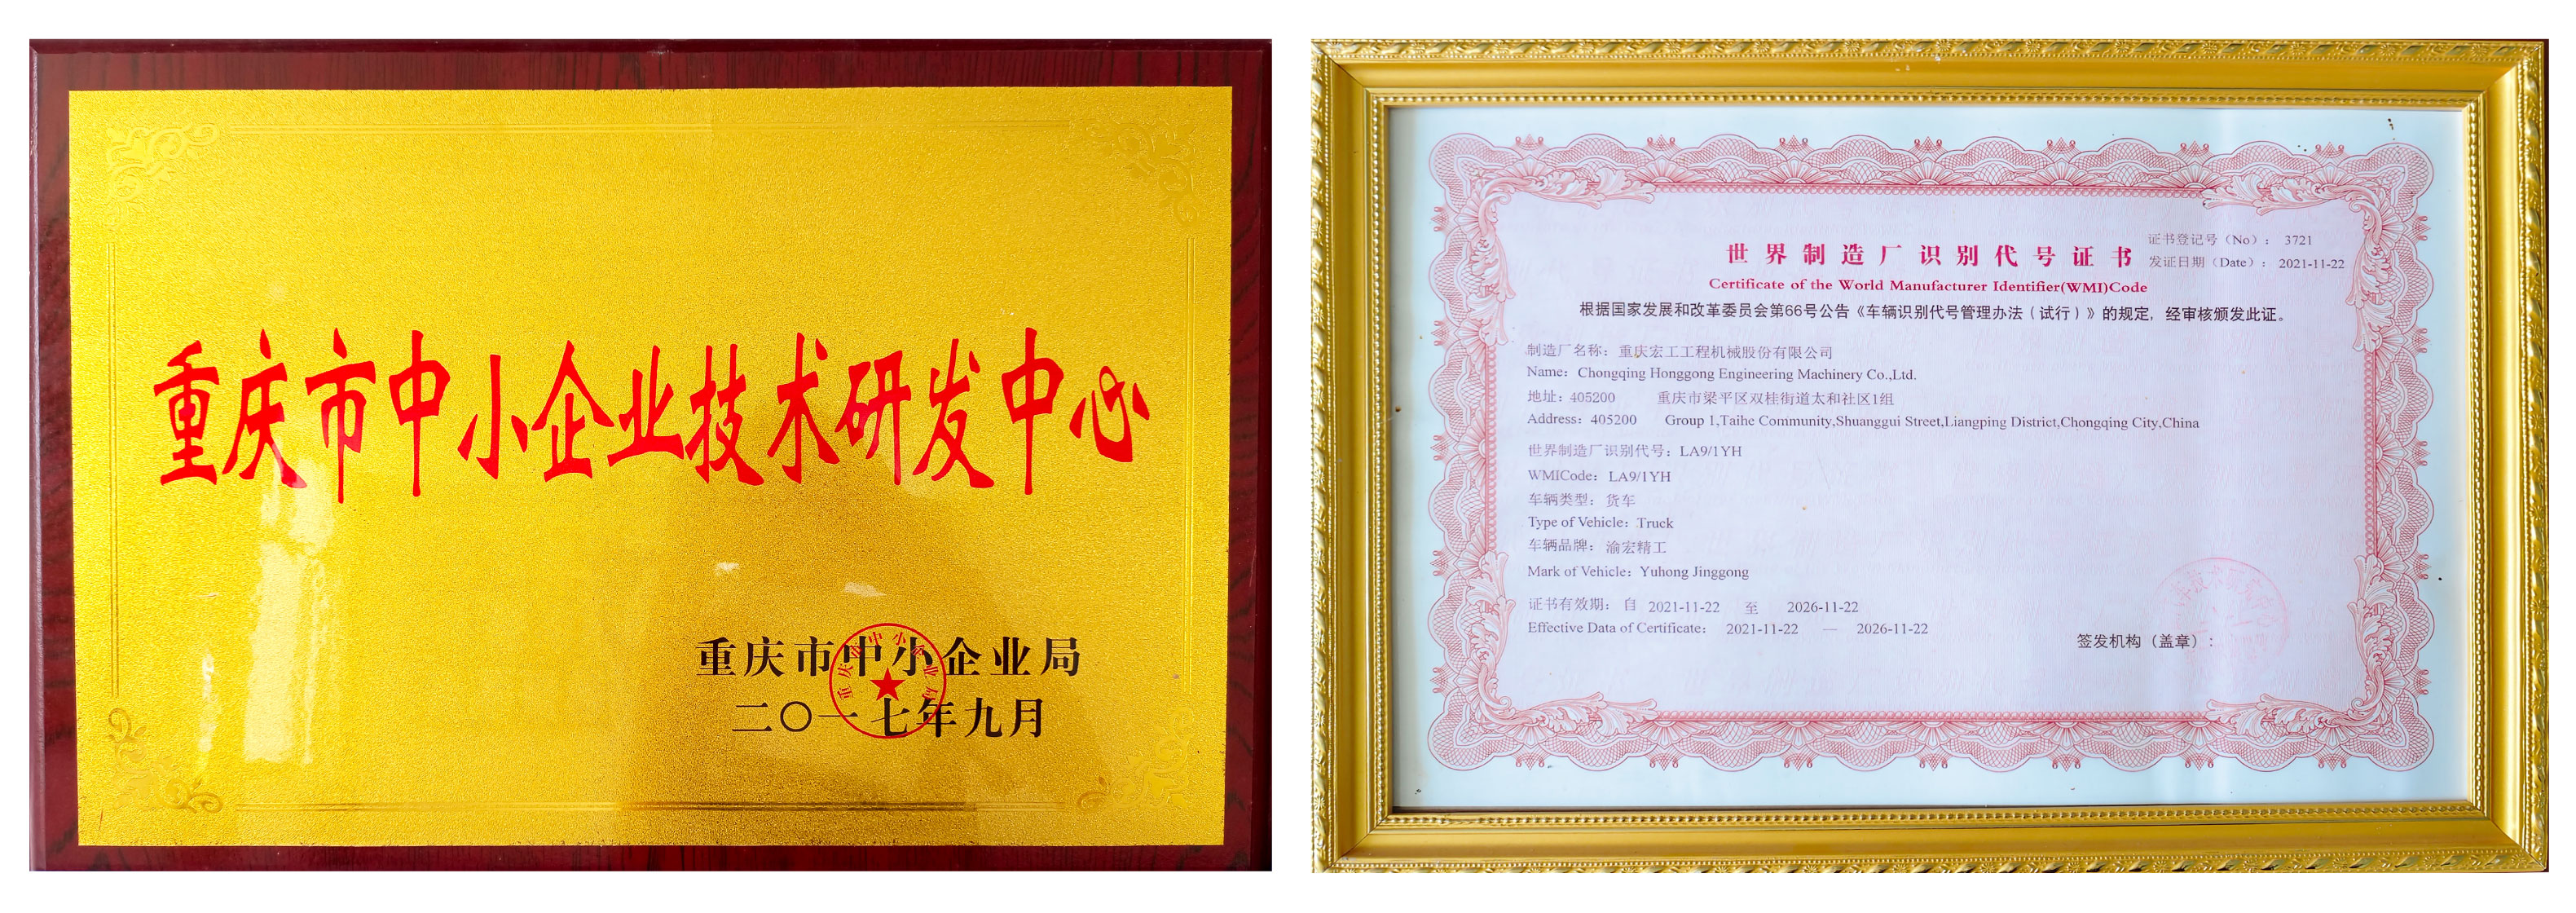 重庆市中小企业技术研发中心
重庆市中小企业局
二〇一七年九月
重庆市中小企业局
证书登记号（No）： 3721
世界制造厂识别代号证书
发证日期（Date）： 2021-11-22
Certificate of the World Manufacturer Identifier(WMI)Code
根据国家发展和改革委员会第66号公告《车辆识别代号管理办法（试行）》的规定，经审核颁发此证。
制造厂名称：重庆宏工工程机械股份有限公司
Name：Chongqing Honggong Engineering Machinery Co.,Ltd.
地址：405200 重庆市梁平区双桂街道太和社区1组
Address：405200 Group 1,Taihe Community,Shuanggui Street,Liangping District,Chongqing City,China
世界制造厂识别代号：LA9/1YH
WMICode：LA9/1YH
车辆类型：货车
Type of Vehicle：Truck
车辆品牌：渝宏精工
Mark of Vehicle：Yuhong Jinggong
证书有效期：自 2021-11-22 至 2026-11-22
Effective Data of Certificate： 2021-11-22 — 2026-11-22
签发机构（盖章）：